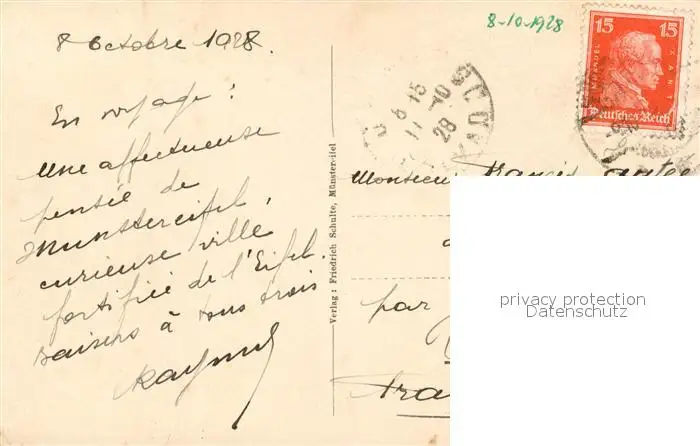 8 octobre 1928.
8-10-1928
15 15
IMMANUEL KANT
Deutsches Reich
En voyage :
une affectueuse
pensée de
Munstereifel,
curieuse ville
fortifiée de l'Eifel.
Baisers à tous trois
Raymond
Verlag: Friedrich Schulte, Münstereifel
6-15
11-10
28
Monsieur Francis
par
privacy protection
Datenschutz